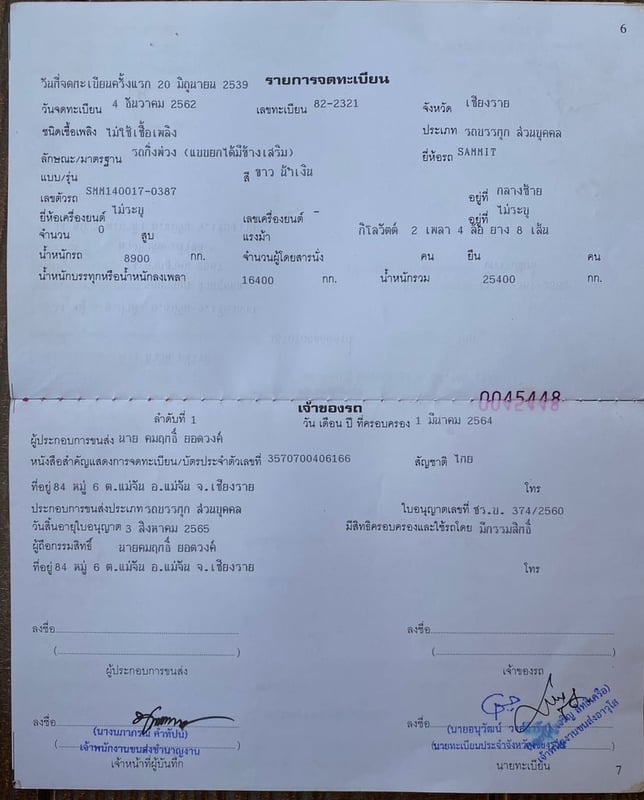 6
วันที่จดทะเบียนครั้งแรก 20 มิถุนายน 2539 รายการจดทะเบียน
วันจดทะเบียน 4 ธันวาคม 2562 เลขทะเบียน 82-2321 จังหวัด เชียงราย
ชนิดเชื้อเพลิง ไม่ใช้เชื้อเพลิง ประเภท รถบรรทุก ส่วนบุคคล
ลักษณะ/มาตรฐาน รถกึ่งพ่วง (แบบยกได้มีข้างเสริม) ยี่ห้อรถ SAMMIT
แบบ/รุ่น สี ขาว น้ำเงิน
เลขตัวรถ SMM140017-0387 อยู่ที่ กลางซ้าย
ยี่ห้อเครื่องยนต์ ไม่ระบุ เลขเครื่องยนต์ - อยู่ที่ ไม่ระบุ
จำนวน 0 สูบ แรงม้า กิโลวัตต์ 2 เพลา 4 ล้อ ยาง 8 เส้น
น้ำหนักรถ 8900 กก. จำนวนผู้โดยสารนั่ง คน ยืน คน
น้ำหนักบรรทุกหรือน้ำหนักลงเพลา 16400 กก. น้ำหนักรวม 25400 กก.
0045448
เจ้าของรถ
ลำดับที่ 1 วัน เดือน ปี ที่ครอบครอง 1 มีนาคม 2564
ผู้ประกอบการขนส่ง นาย คมฤกธิ์ ยอดวงค์
หนังสือสำคัญแสดงการจดทะเบียน/บัตรประจำตัวเลขที่ 3570700406166 สัญชาติ ไทย
ที่อยู่ 84 หมู่ 6 ต.แม่จัน อ.แม่จัน จ.เชียงราย โทร
ประกอบการขนส่งประเภท รถบรรทุก ส่วนบุคคล ใบอนุญาตเลขที่ ชร.บ. 374/2560
วันสิ้นอายุใบอนุญาต 3 สิงหาคม 2565 มีสิทธิครอบครองและใช้รถโดย มีกรรมสิทธิ์
ผู้ถือกรรมสิทธิ์ นายคมฤกธิ์ ยอดวงค์
ที่อยู่ 84 หมู่ 6 ต.แม่จัน อ.แม่จัน จ.เชียงราย โทร
ลงชื่อ ลงชื่อ
( ) ( )
ผู้ประกอบการขนส่ง เจ้าของรถ
ลงชื่อ ลงชื่อ
(นางนภาภรณ์ คำทิปน์) (นายอนุวัฒน์
เจ้าพนักงานขนส่งชำนาญงาน (นายทะเบียนประจำจังหวัดเชียงราย)
เจ้าพนักงานขนส่งอาวุโส
เจ้าหน้าที่ผู้บันทึก นายทะเบียน
7